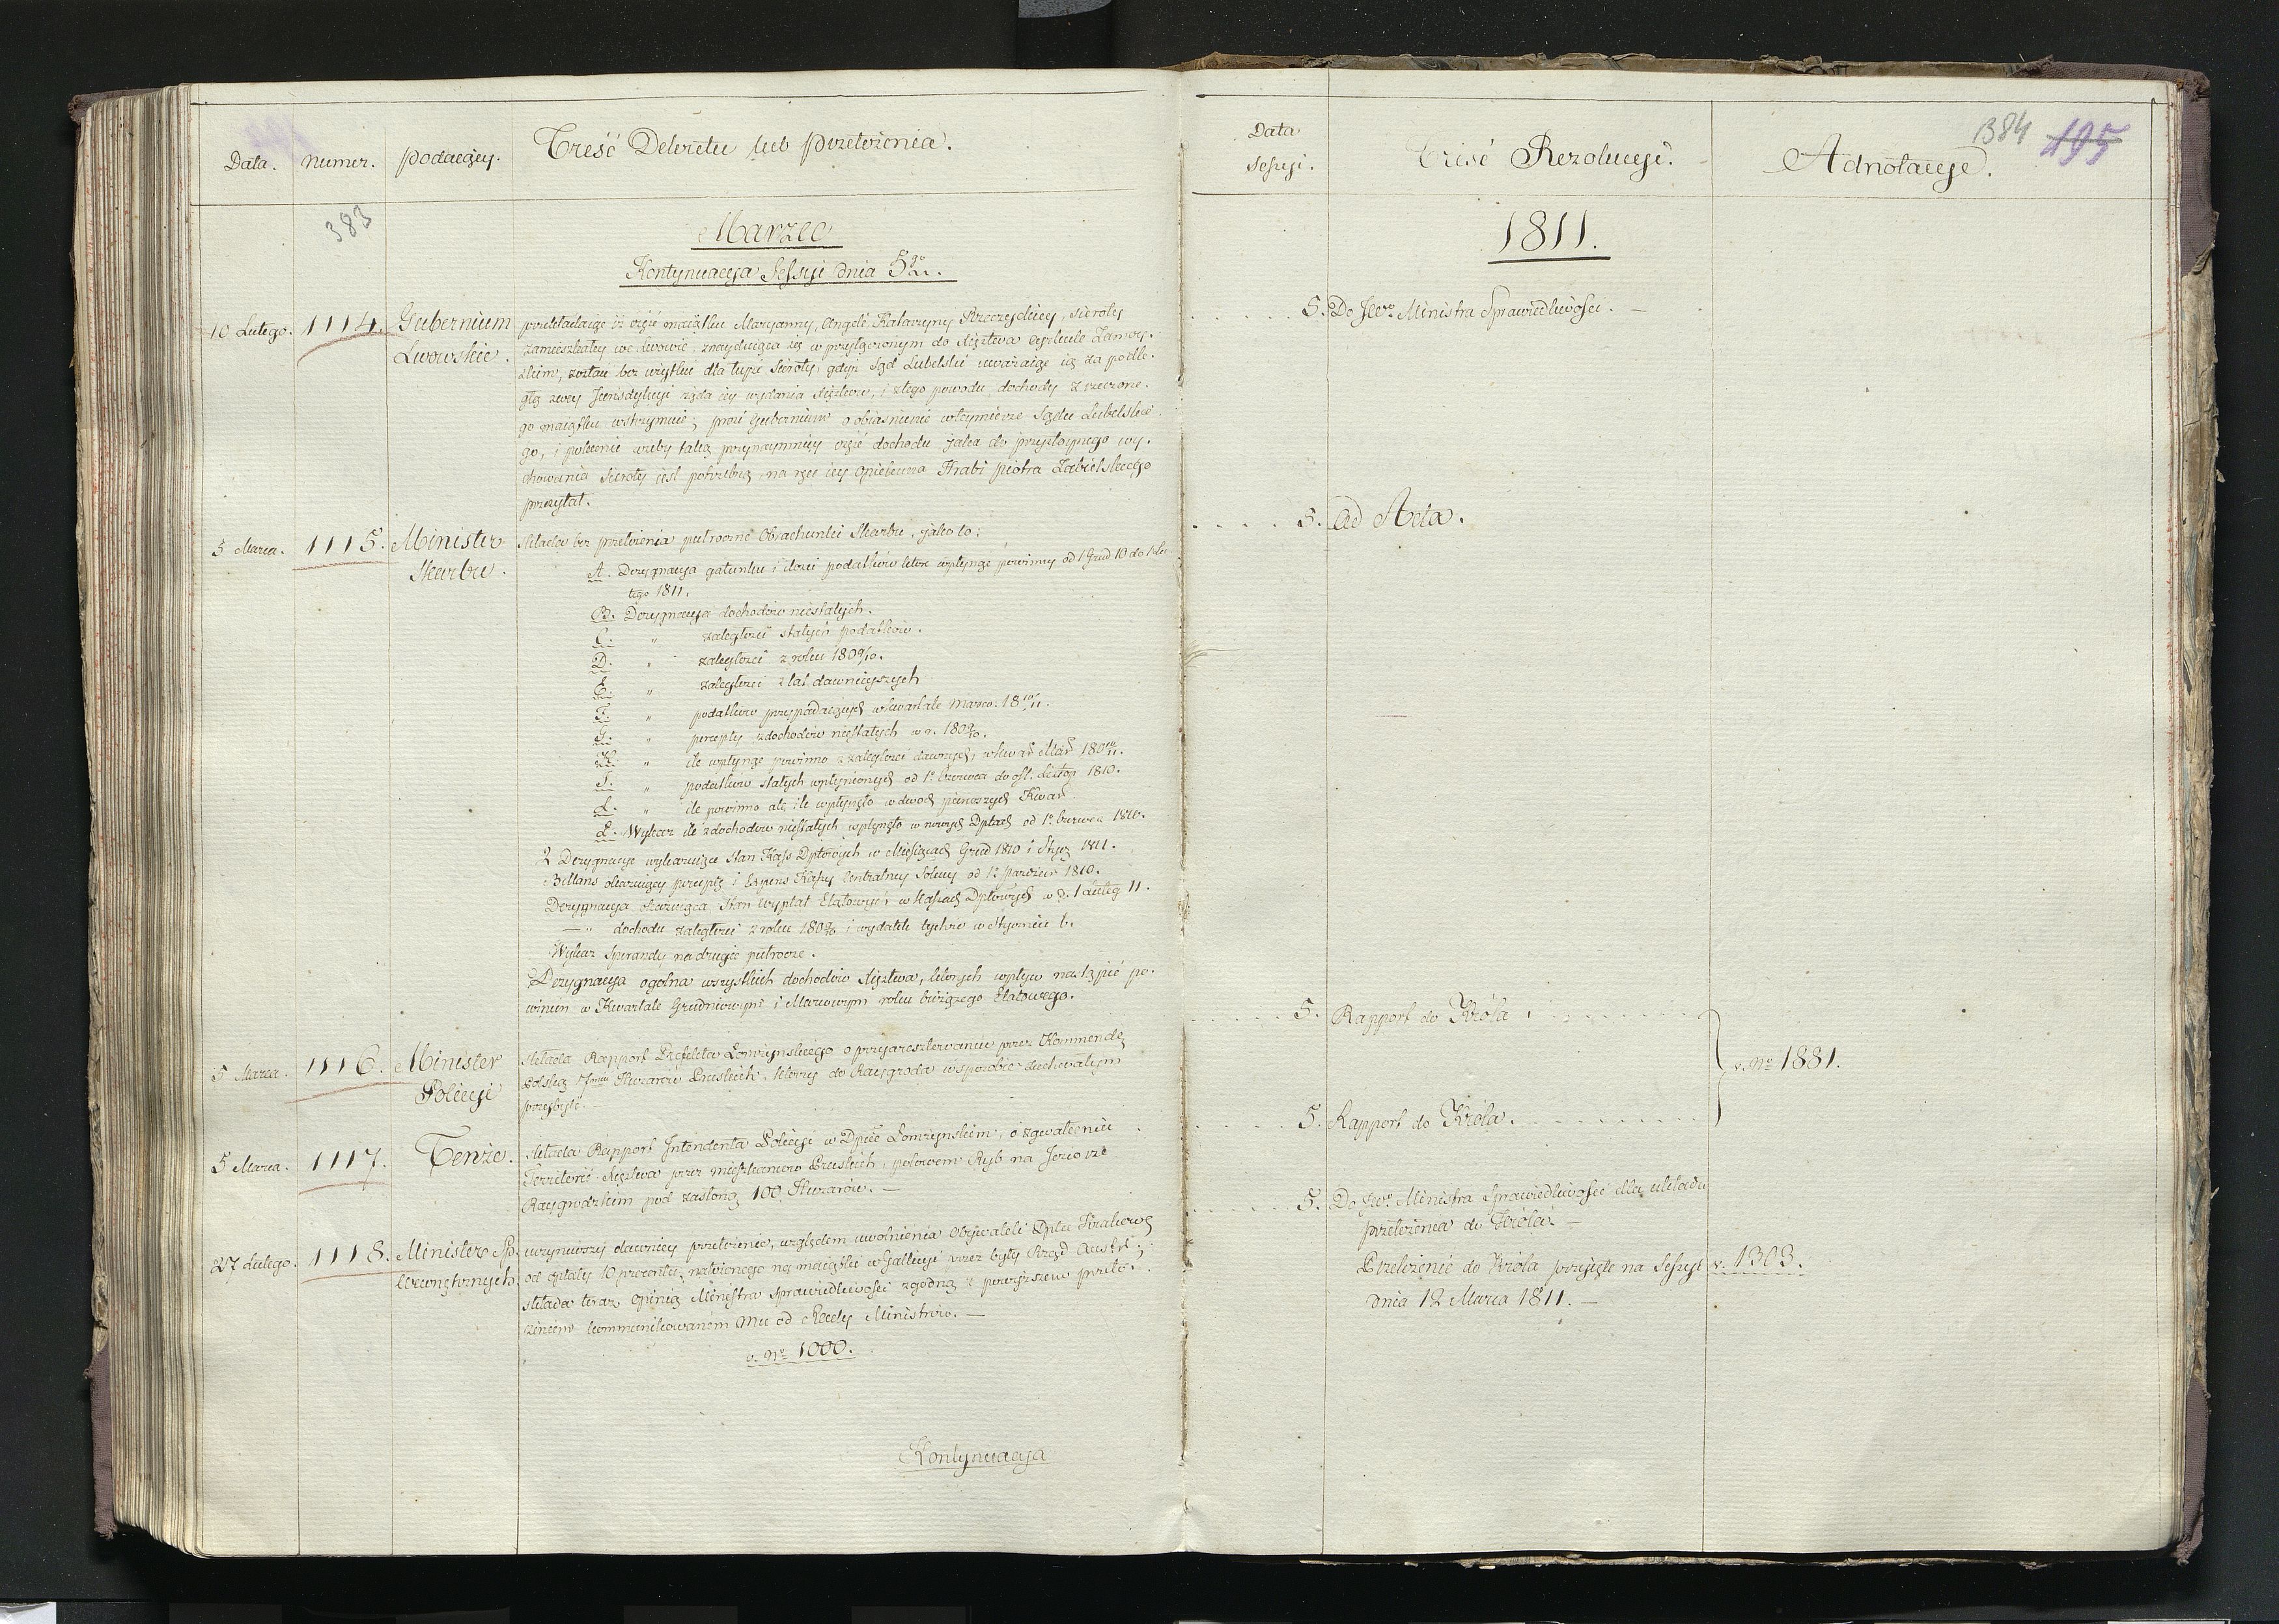 Data.
numer.
podaiący.
Treść Dekretu lub przełożenia.
383
Marzec
Kontynuacya Sessyi dnia 5go
10 Lutego.
1114.
Gubernium
Lwowskie.
przekładaiąc iż część maiątku Maryanny, Angeli, Katarzyny Rzeczyckiey, sieroty
zamieszkałey we Lwowie, znayduiąca się w przyłączonym do Xięztwa cyrkule Zamoy-
skim, została bez użytku dla teyże sieroty, gdyż Sąd Lubelski uważaiąc ią za podle-
głą swey Jurisdykcyi żąda iey wydania Xięztwu, i z tego powodu dochody z rzeczone-
go maiątku wstrzymuie; prosi Gubernium o obiasnienie w tey mierze Sądu Lubelskie-
go, i polecenie ażeby taką przynaymniey część dochodu jaka do przystoynego wy-
chowania sieroty jest potrzebną, na ręce iey opiekuna Hrabi Piotra Zabielskiego
przysyłał.
5 Marca.
1115.
Minister
Skarbu.
składa bez przełożenia pułroczne Obrachunki Skarbu, jako to:
A. Dezygnacya gatunku i ilości podatków które wpłynąć powinny od 1 Grud. 10 do 1 Lu-
tego 1811.
B. Dezygnacya dochodów niestałych.
C. " zaległości stałych podatków.
D. " zaległości z roku 1809/10.
E. " zaległości z lat dawnieyszych
F. " podatków przypadaiących w kwartale Marco. 1810/11.
G. " percepty z dochodów niestałych w r. 1809/10.
H. " ile wpłynąć powinno z zaległości dawnych w kwar. Mar. 1810/11.
J. " podatków stałych wpłynionych od 1o Czerwca do ost. Listop 1810.
K. " ile powinno ale ile wpłynęło w dwoch pierwszych Kwar.
L. Wykaz ile z dochodów niestałych wpłynęło w nowych Dptach od 1o Czerwca 1810.
2 Dezygnacye wykazuiące stan Kass Dptowych w Miesiącach Grud 1810 i Stycz 1811.
Billans okazuiący perceptę i Expens Kassy Centralney Solney od 1o Paździer 1810.
Dezygnacya okazuiąca stan wypłat Etatowych w Kassach Dptowych w d. 1 Luteg 11.
— " dochodu zaległości z roku 1809/10 i wydatku tychże w Styczniu b.
Wykaz Sperandy na drugie pułrocze.
Dezygnacya ogolna wszystkich dochodów Xięztwa, ktorych wpływ nastąpić po-
winien w Kwartale Grudniowym i Marcowym roku bieżącego Etatowego.
5 Marca.
1116.
Minister
Policyi
składa Rapport Prefekta Łomżynskiego o przyaresztowaniu przez Kommendę
Polską 7miu Huzarów Pruskich, ktorzy do Raygroda w sposobie duchwałym
przybyli.
5 Marca.
1117.
Tenże.
składa Rapport Intendenta Policyi w Dpcie Łomżynskim, o zgwałceniu
Territorii Xięztwa przez mieszkancow Pruskich, połowem Ryb na Jeziorze
Raygrodzkim pod zasłoną 100 Huzarów. —
27 Lutego.
1118.
Minister Sp.
Wewnętrznych.
uczyniwszy dawniey przełożenie, względem uwolnienia Obywateli Dptu Krakows
od opłaty 10 procentu, nałożonego na maiątki w Gallicyi przez były Rząd Austr.;
składa teraz opinią Ministra sprawiedliwości zgodną z powyższem przeło-
żeniem kommunikowanem Mu od Rady Ministrów. —
v. No 1000.
Kontynuacya
Data
Sessyi.
Treść Rezolucyi.
Adnotacye.
384
195
1811.
5. Do JWo Ministra Sprawiedliwości. —
5. Ad Acta.
5. Rapport do Króla.
v. No 1881.
5. Rapport do Króla.
5. Do JWo Ministra Sprawiedliwości dla układu
przełożenia do Króla. —
Przełożenie do Króla przyięte na Sessyi
v. 1303.
dnia 12 Marca 1811. —